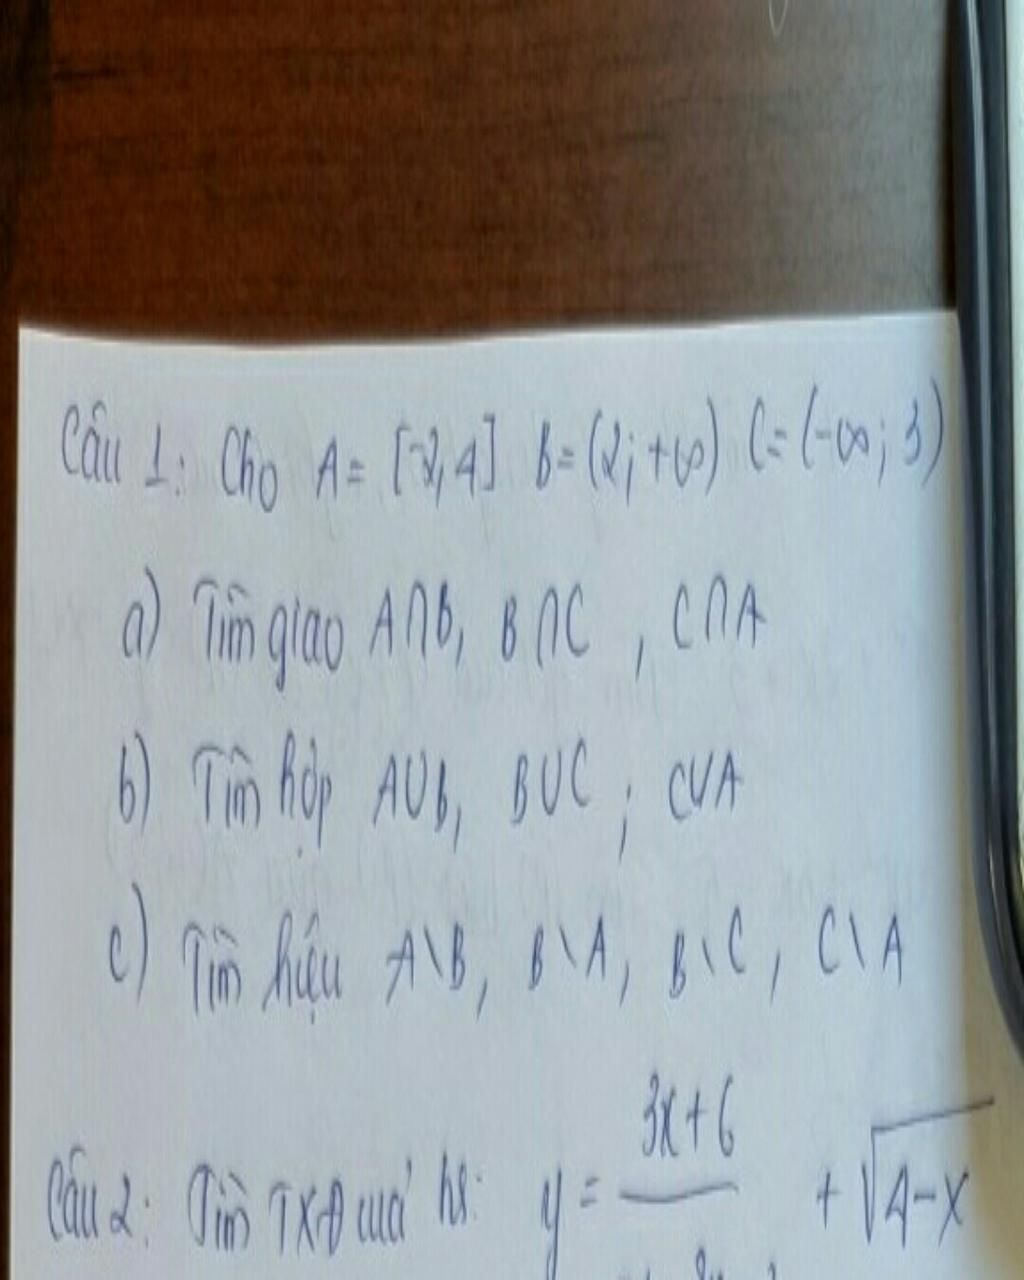 Câu 1: Cho A = [-2, 4] B = (2; +∞) C = (-∞; 3)
a) Tìm giao A∩B, B∩C , C∩A
b) Tìm hợp A∪B, B∪C ; C∪A
c) Tìm hiệu A\B, B\A, B\C, C\A
3x+6
Câu 2: Tìm TXĐ của hs: y = + √4-x